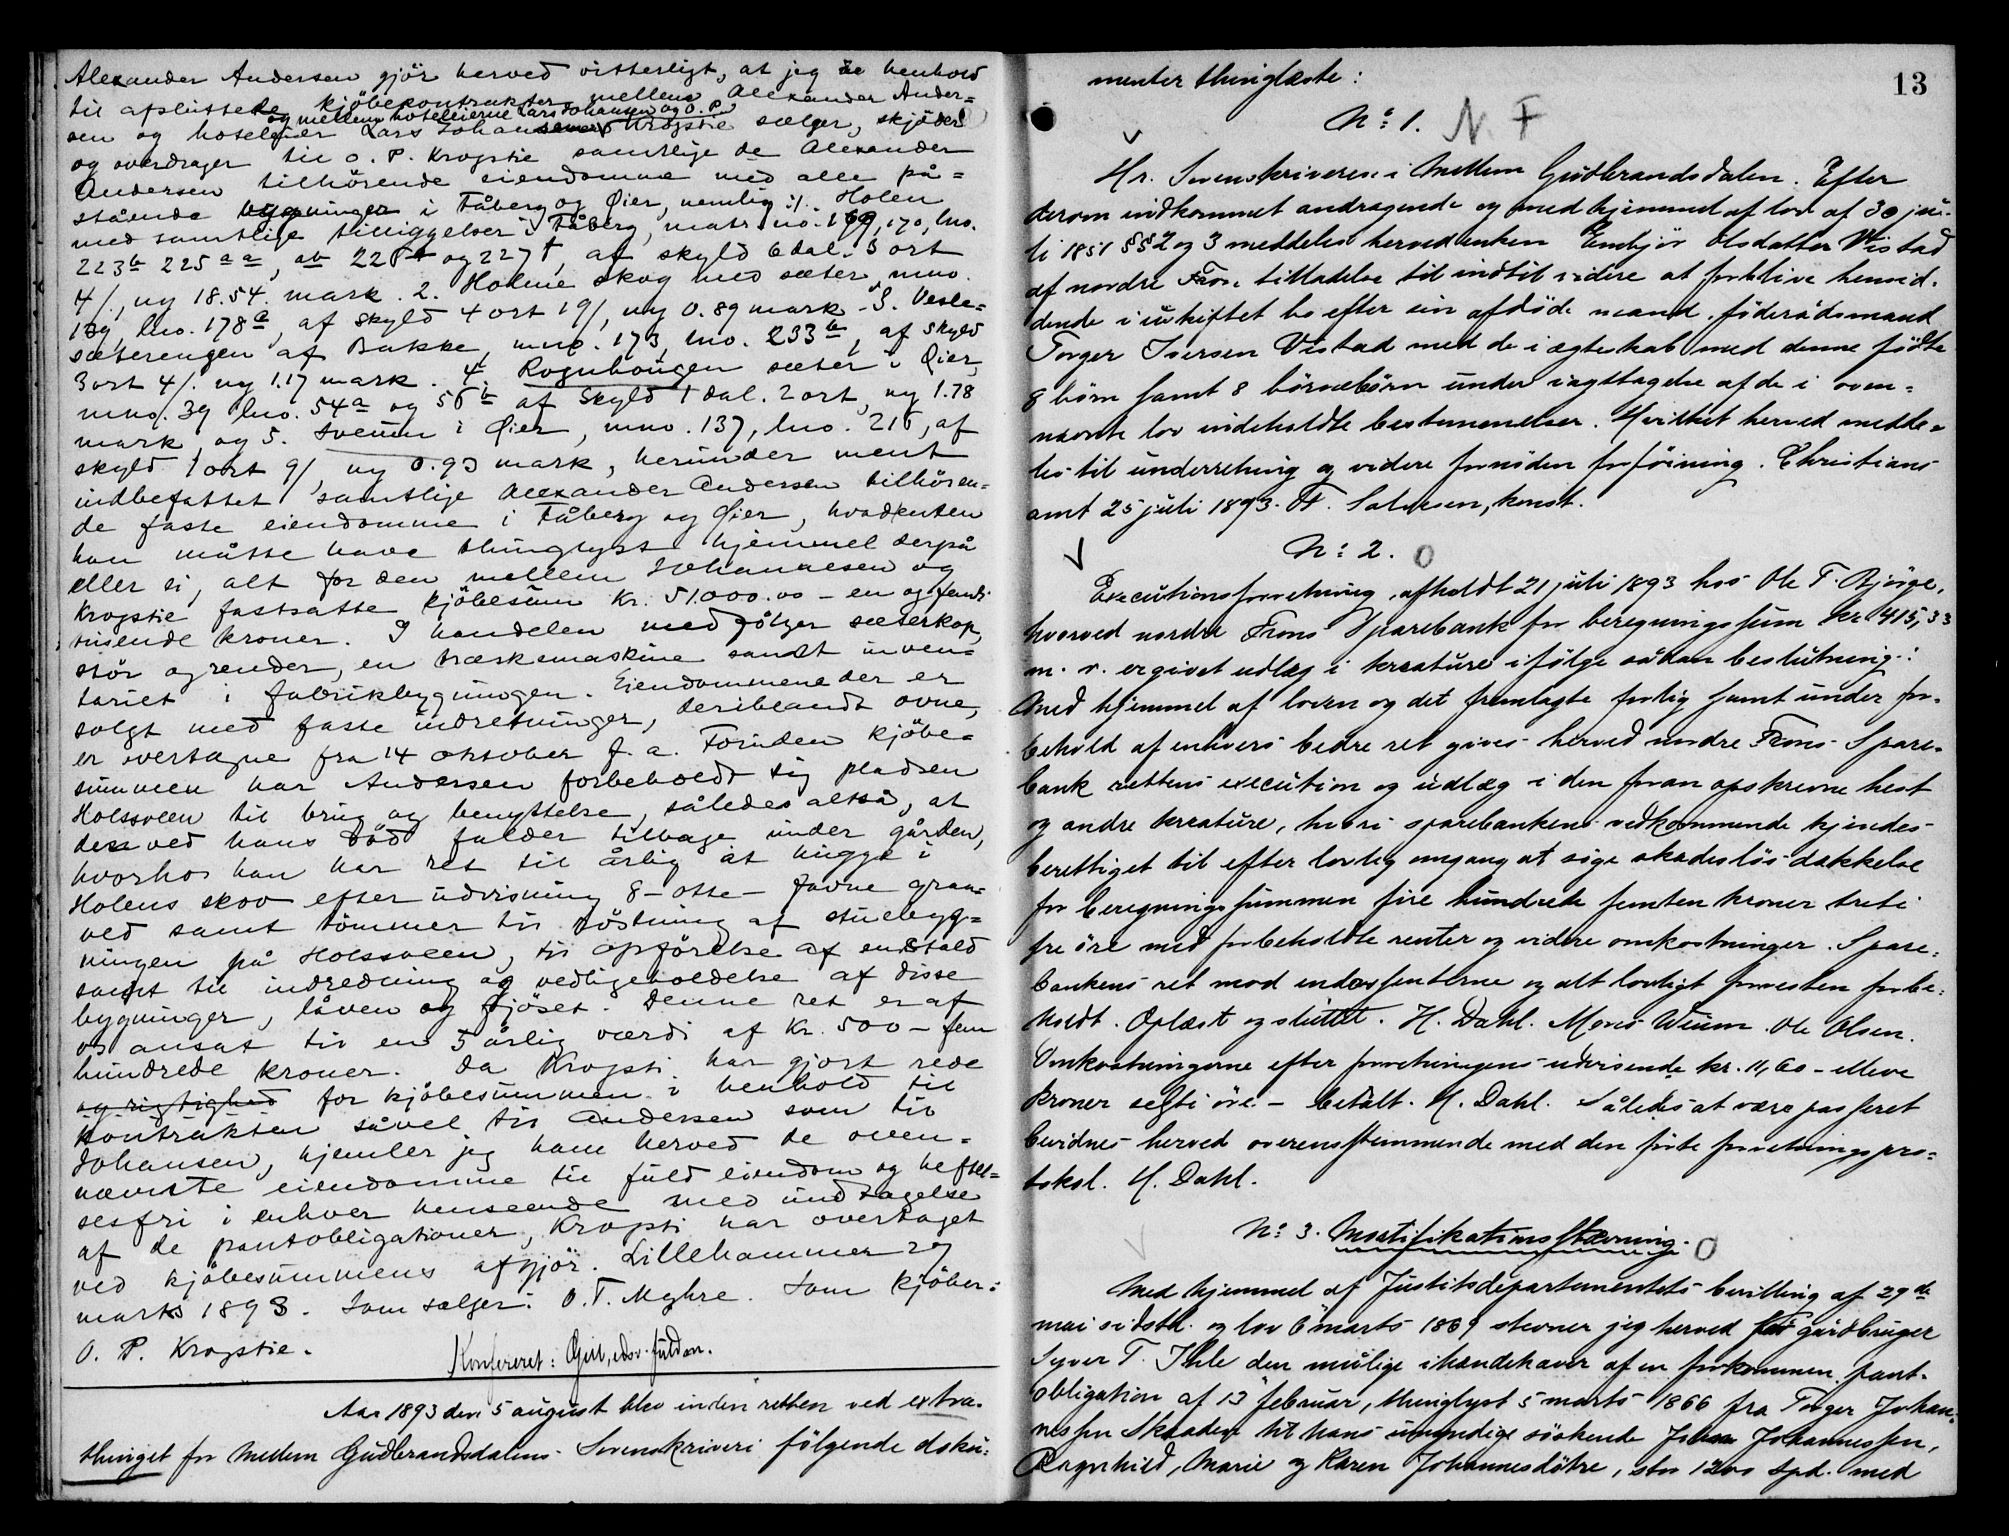 Alexander Andersen gjör herved vitterligt, at jeg i henhold
til afsluttede kjöbekontrakter mellem Alexander Ander=
og mellem hoteleierne Lars Johansen og O. P.
sen og hoteleier Lars Johansen Krogstie sælger, skjöder
og overdrager til O. P. Krogstie samtlige de Alexander
Andersen tilhörende eiendomme med alle på=
stående bygninger i Fåberg og Öier, nemlig: 1. Holen
med samtlige tilliggelser i Fåberg, matr. no. 169, 170, lno.
223b 225aa, ab 226 og 227, af skyld 6 dal. 3 ort
4/, ny 18.54 mark. 2. Holene skog med sæter mno.
139, lno. 178a, af skyld 4 ort 19/, ny 0.89 mark. 3. Vesle=
sæterengen af Bakke, mno. 173, lno. 233b, af skyld
3 ort 4/. ny 1.17 mark. 4. Rognhougen sæter i Öier,
mno. 39 lno. 54a og 56b af skyld 1 dal. 2 ort, ny 1.78
mark og 5. Sveum i Öier, mno. 137, lno. 216, af
skyld 1 ort 9/, ny 0.93 mark, herunder ment
indbefattet samtlige Alexander Andersen tilhören=
de faste eiendomme i Fåberg og Öier, hvadenten
han måtte have thinglyst hjemmel derpå
eller ei, alt for den mellem Johannesen og
Krogstie fastsatte kjöbesum kr. 51.000.00 - en og femti
tusende kroner. I handelen medfölger sæterkop,
stör og render, en træskemaskine samt inven=
tariet i fabrikbygningen. Eiendommene der er
solgt med faste indretninger, deriblandt ovne,
er overtagne fra 14 oktober f. a. Foruden kjöbe=
summen har Andersen forbeholdt sig pladsen
Holssveen til brug og benyttelse, således altså, at
den ved hans död falder tilbage under gården,
hvorhos han har ret til årlig at hugge i
Holens skov efter udvisning 8 - otte - favne gran=
ved samt tömmer til röstning af stuebyg=
ningen på Holssveen, til opförelse af en stald
samt til indredning og vedligeholdelse af disse
bygninger, låven og fjöset. Denne ret er af
os ansat til en 5 årlig værdi af kr. 500 - fem
hundrede kroner. Da Krogsti har gjort rede
og rigtighed for kjöbesummen i henhold til
kontrakten såvel til Andersen som til
Johansen, hjemler jeg ham herved de oven=
nævnte eiendomme til fuld eiendom og heftel=
sesfri i enhver henseende med undtagelse
af de pantobligationer, Krogsti har overtaget
ved kjöbesummens afgjör. Lillehammer 29
marts 1893. Som sælger: O. T. Myhre. Som kjöber:
O. P. Krogstie.
Konfereret:
Aar 1893 den 5 august blev inden retten ved extra-
thinget for Mellem Gudbrandsdalens Sorenskriveri fölgende doku=
13
menter thinglæste:
No 1. N. F
Hr. Sorenskriveren i Mellem Gudbrandsdalen. Efter
derom indkommet andragende og med hjemmel af lov af 30 ju-
li 1851 §§ 2 og 3 meddeles herved enken Embjör Olsdatter Vistad
af nordre Fron tilladelse til indtil videre at forblive hensid-
dende i uskiftet bo efter sin afdöde mand, föderådsmand
Torger Iversen Vistad med de i ægteskab med denne födte
8 börn samt 8 börnebörn under iagttagelse af de i oven=
nævnte lov indeholdte bestemmelser. Hvilket herved medde=
les til underretning og videre fornöden forföining. Christians
amt 25 juli 1893. Salvesen, konst.
No 2. O
Executionsforretning, afholdt 21 juli 1893 hos Ole T. Björge,
hvorved nordre Frons Sparebank for beregningssum kr 415,33
m. v. er givet udlæg i kreature ifölge sådan beslutning:
Med hjemmel af loven og det fremlagte forlig samt under for-
behold af enhvers bedre ret gives herved nordre Frons Spare-
bank rettens execution og udlæg i den foran opskrevne hest
og andre kreature, hvori sparebankens vedkommende kjendes
berettiget til efter lovlig omgang at söge skadeslös dækkelse
for beregningssummen fire hundrede femten kroner treti
tre öre med forbeholdte renter og videre omkostninger. Spare=
bankens ret mod endossenterne og alt lovligt forresten forbe=
holdt. Oplæst og sluttet. H. Dahl. Mons Weum. Ole Olsen.
Omkostningerne efter forretningens udvisende kr. 11,60 - elleve
kroner sexti öre - betalt. H. Dahl. Således at være passeret
bevidnes herved overensstemmende med den förte forretningspro=
tokol. H. Dahl.
No 3. Mortifikationsstævning. O
Med hjemmel af Justitsdepartementets bevilling af 29de
mai sidstl. og lov 6 marts 1869 stevner jeg herved for gårdbruger
Syver T. Ihle den mulige ihændehaver af en forkommen pant-
obligation af 13 februar, thinglyst 5 marts 1866 fra Torger Johan=
nessen Skaaden til hans umyndige söskende Johan Johannessen,
Ragnhild, Marie og Karen Johannesdötre, stor 1200 spd. med